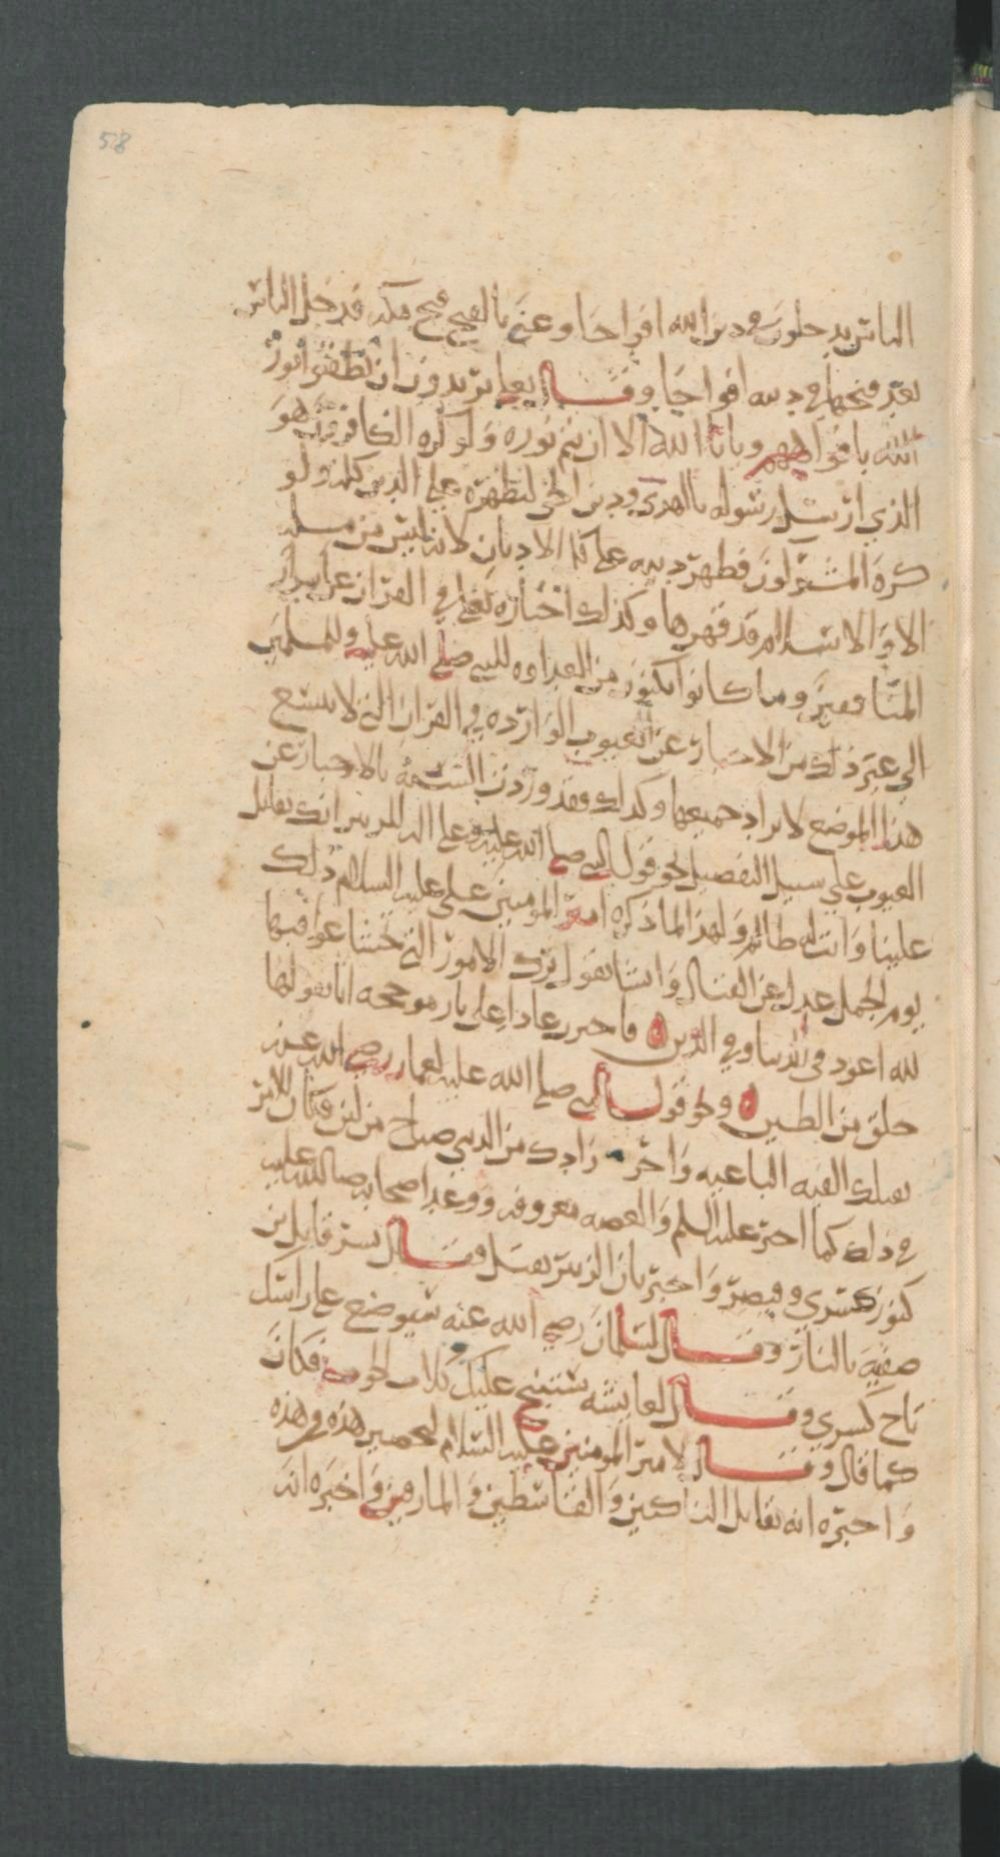 58
الناس يدخلون في دين الله افواجا وعني بالفتح فتح مكه فدخل الناس
بعد فتحها في دينه افواجا وقال تعلى يريدون ان يطفئوا نور
الله بافواههم ويابا الله الا ان يتم نوره ولو كره الكافرون هو
الذي ارسل رسوله بالهدى ودين الحق ليظهره على الدين كله ولو
كره المشركون فظهر دينه على كل الاديان لانه ليس من مله
الا والاسلام قد قهرها وكذلك اخباره تعلى في القران عن
المنافقين وما كانوا يكنون من العداوه للنبي صلى الله عليه وللمسلمين
الى غير ذلك من الاخبار عن الغيوب الوارده في القران التي لا يتسع
هذا الموضع لايراد جميعها وكذلك فقد وردت السنه بالاخبار عن
الغيوب على سبيل التفصيل نحو قول النبي صلى الله عليه وعلى اله للزبير انك تقاتل
عليا وانت له ظالم ولهذا لما ذكره امير المومنين على عليه السلام ذلك
يوم الجمل عدل عن القتال وانشا يقول ترك الامور التي تخشا عواقبها
لله اعود في الدنيا وفي الدين فاخترت عارا على نار موججه انا يقوم لها
خلق من الطين ونحو قول النبي صلى الله عليه لعمار رضي الله عنه
تقتلك الفيه الباغيه واخر زادك من الدنيا صياح من لبن فكان الامر
في ذلك كما اخبر عليه السلم والقصه معروفه ووعد اصحابه صلى الله عليه
كنوز كسرى وقيصر واخبر بان الزبير يقتل وقال بشر قاتل بن
صفيه بالنار وقال لسلمان رضي الله عنه سيوضع على راسك
تاج كسرى وقال لعايشه ستنبح عليك كلاب الحوب فكان
كما قال وقال لامير المومنين عليه السلام لتخضبن هذه من هذه
واخبره انه يقاتل الناكثين والقاسطين والمارقين واخبره انه